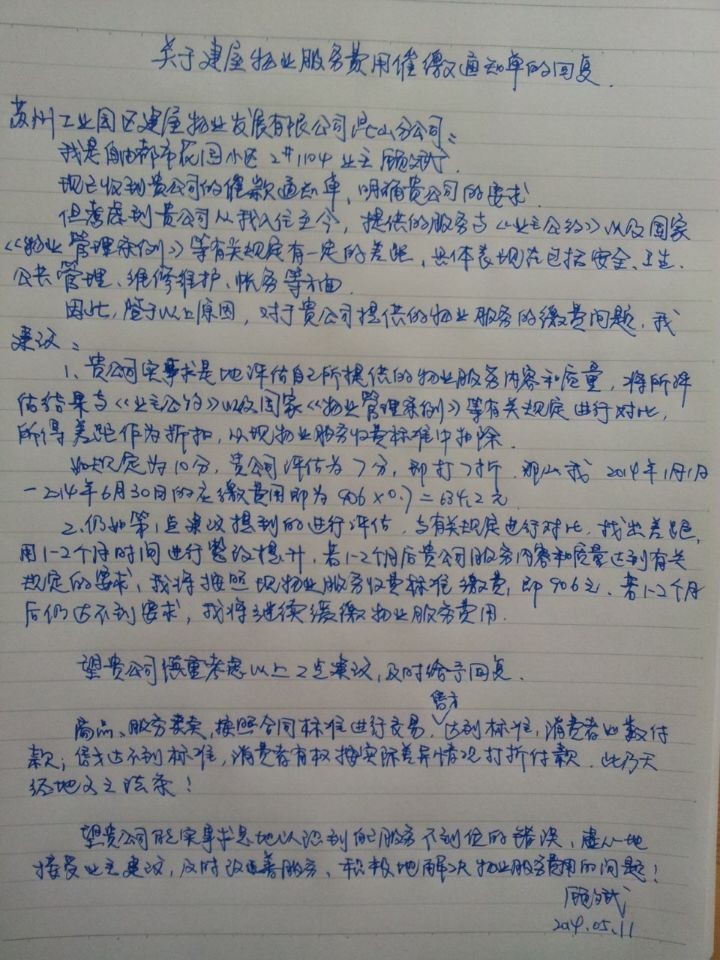 关于建屋物业服务费用催缴通知单的回复.
苏州工业园区建屋物业发展有限公司昆山分公司:
我是自由都市花园小区 2#1104 业主
现已收到贵公司的催款通知单, 明确贵公司的要求.
但考虑到贵公司从我入住至今, 提供的服务与《业主公约》以及国家
《物业管理条例》等有关规定有一定的差距, 具体表现在包括安全、卫生、
公共管理、维修维护、帐务等方面.
因此, 鉴于以上原因, 对于贵公司提供的物业服务的缴费问题, 我
建议:
1、贵公司实事求是地评估自己所提供的物业服务内容和质量, 将所评
估结果与《业主公约》以及国家《物业管理条例》等有关规定进行对比,
所得差距作为折扣, 从现物业服务收费标准中扣除.
如规定为10分, 贵公司评估为7分, 即打7折. 那么我 2014年1月1日
-2014年6月30日的应缴费用即为 906×0.7=634.2元.
2、仍如第1点建议提到的进行评估, 与有关规定进行对比, 找出差距,
用1-2个月时间进行整改提升, 若1-2个月后贵公司服务内容和质量达到有关
规定的要求, 我将按照现物业服务收费标准缴费, 即906元. 若1-2个月
后仍达不到要求, 我将继续缓缴物业服务费用.
望贵公司慎重考虑以上2点建议, 及时给予回复.
商品、服务买卖, 按照合同标准进行交易, 售方达到标准, 消费者如数付
款; 售方达不到标准, 消费者有权按实际差异情况打折付款. 此乃天
经地义之法条!
望贵公司能实事求是地认识到自己服务不到位的错误, 虚心地
接受业主建议, 及时改善服务、积极地解决物业服务费用的问题!
2014.05.11